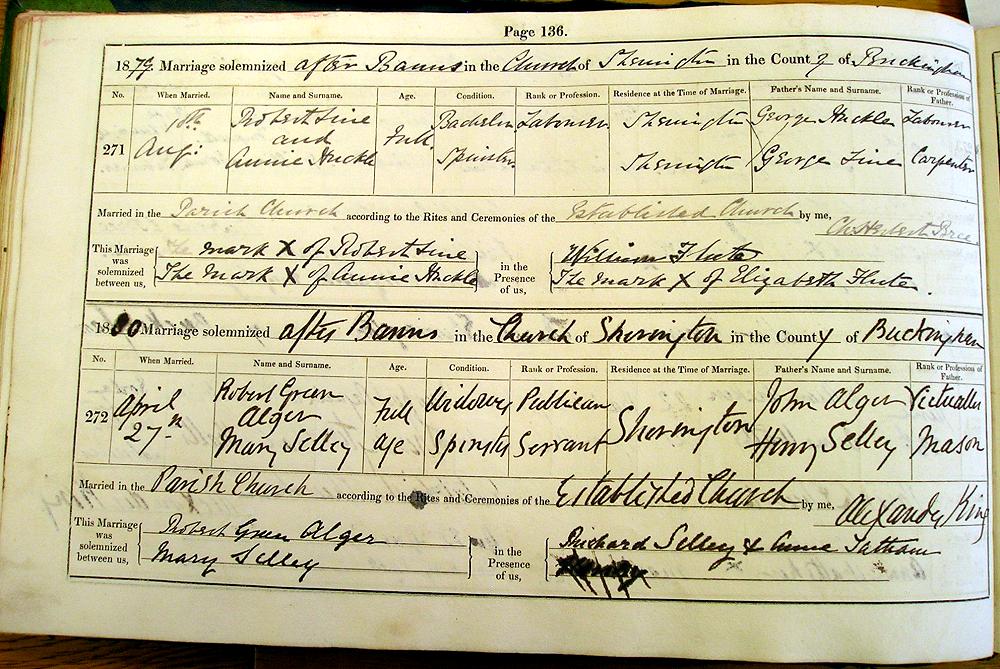 Page 136.
1879. Marriage solemnized after Banns in the Church of Sherington in the County of Buckingham
No. When Married. Name and Surname. Age. Condition. Rank or Profession. Residence at the Time of Marriage. Father's Name and Surname. Rank or Profession of Father.
271 Aug: Robert Line and Annie Huckle Full Bachelor Spinster Labourer Sherington Sherington George Huckle George Line Labourer Carpenter
Married in the Parish Church according to the Rites and Ceremonies of the Established Church by me,
This Marriage was solemnized between us,
The mark X of Robert Line
The Mark X of Annie Huckle
in the Presence of us,
William Flute
The mark X of Elizabeth Flute.
1880 Marriage solemnized after Banns in the Church of Sherington in the County of Buckingham
No. When Married. Name and Surname. Age. Condition. Rank or Profession. Residence at the Time of Marriage. Father's Name and Surname. Rank or Profession of Father.
272 April 27th Robert Green Alger Mary Selley Full age Widower Spinster Publican Servant Sherington John Alger Henry Selley Victualler Mason
Married in the Parish Church according to the Rites and Ceremonies of the Established Church by me, Alexander King
This Marriage was solemnized between us,
Robert Green Alger
Mary Selley
in the Presence of us,
Richard Selley & Annie Tatham